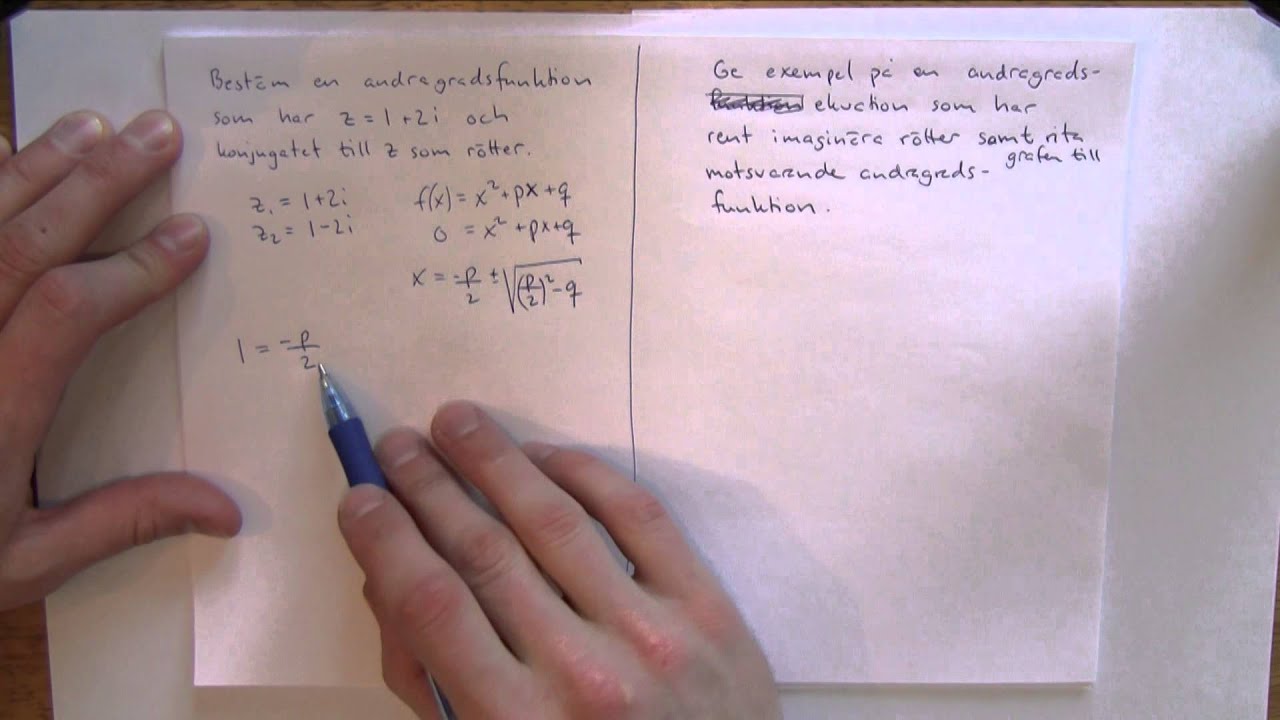 Bestäm en andragradsfunktion
som har z = 1+2i och
konjugatet till z som rötter.
z₁ = 1+2i
z₂ = 1-2i
f(x) = x² + px + q
0 = x² + px + q
x = -p/2 ± √((p/2)² - q)
1 = -p/2
Ge exempel på en andragrads-
ekvation som har
rent imaginära rötter samt rita
grafen till
motsvarande andragrads-
funktion.